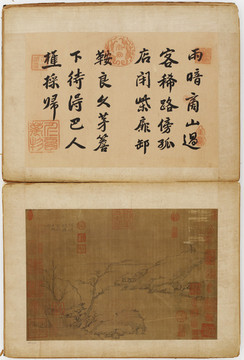 雨暗商山過
客稀路傍孤
店閉柴扉卸
鞍良久茅簷
下待得巴人
樵採歸